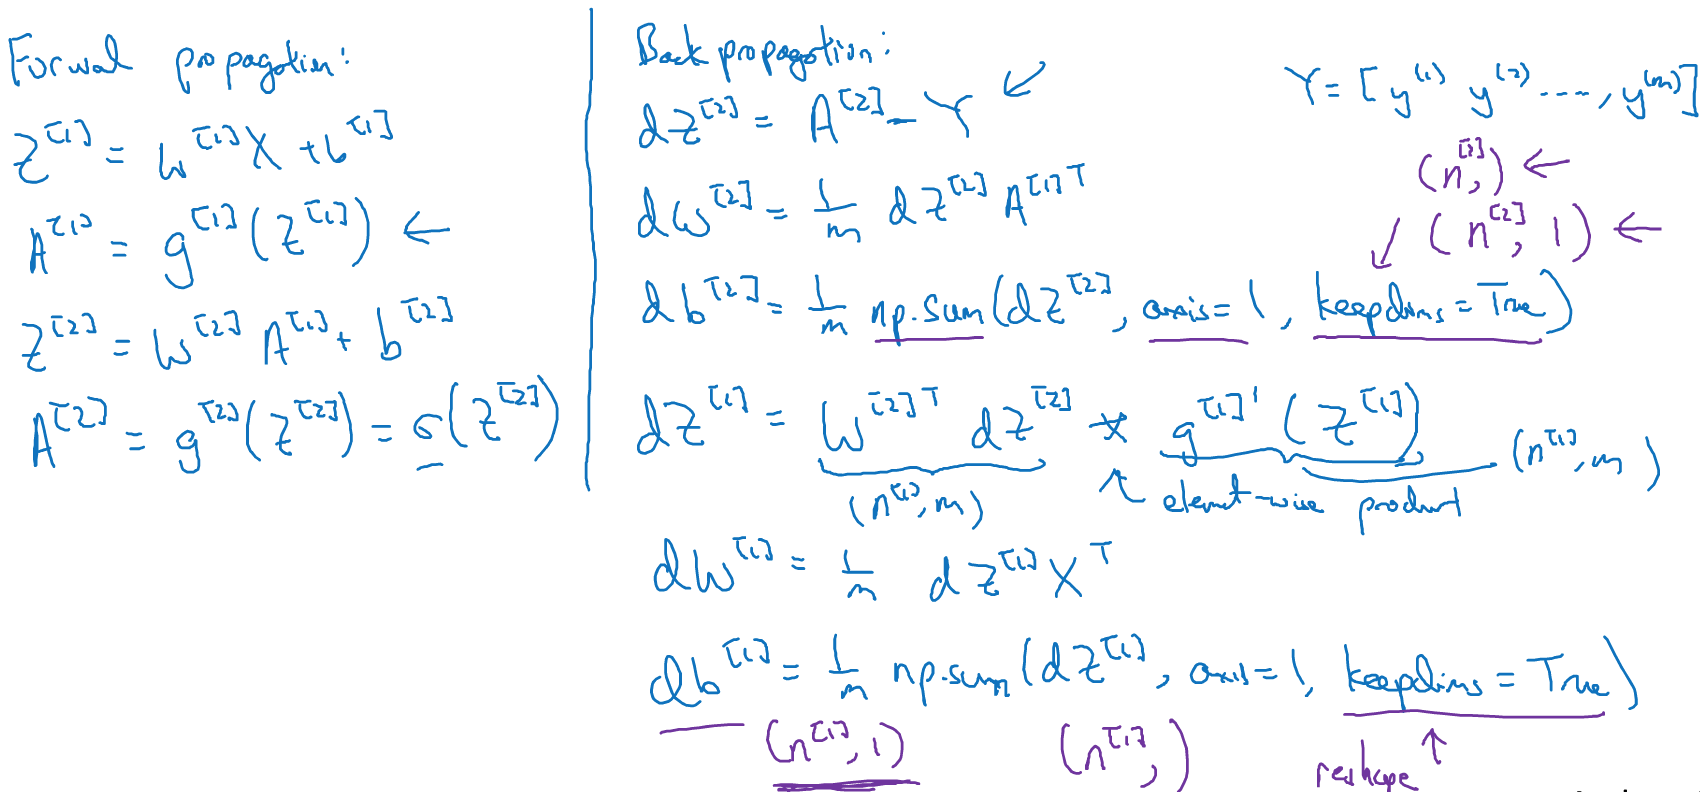 Forwal propagation:
Z^[1] = W^[1] X + b^[1]
A^[1] = g^[1](Z^[1]) ←
Z^[2] = W^[2] A^[1] + b^[2]
A^[2] = g^[2](Z^[2]) = σ(Z^[2])
Back propagation:
dZ^[2] = A^[2] - Y ↙
Y = [y^(1) y^(2) ...., y^(m)]
dW^[2] = 1/m dZ^[2] A^[1]T
(n^[2],) ←
↙ (n^[2], 1) ←
db^[2] = 1/m np.sum(dZ^[2], axis=1, keepdims=True)
dZ^[1] = W^[2]T dZ^[2] * g^[1]'(Z^[1])
(n^[1], m) ↖ element-wise product (n^[1], m)
dW^[1] = 1/m dZ^[1] X^T
db^[1] = 1/m np.sum(dZ^[1], axis=1, keepdims=True)
(n^[1], 1) (n^[1],) reshape ↑